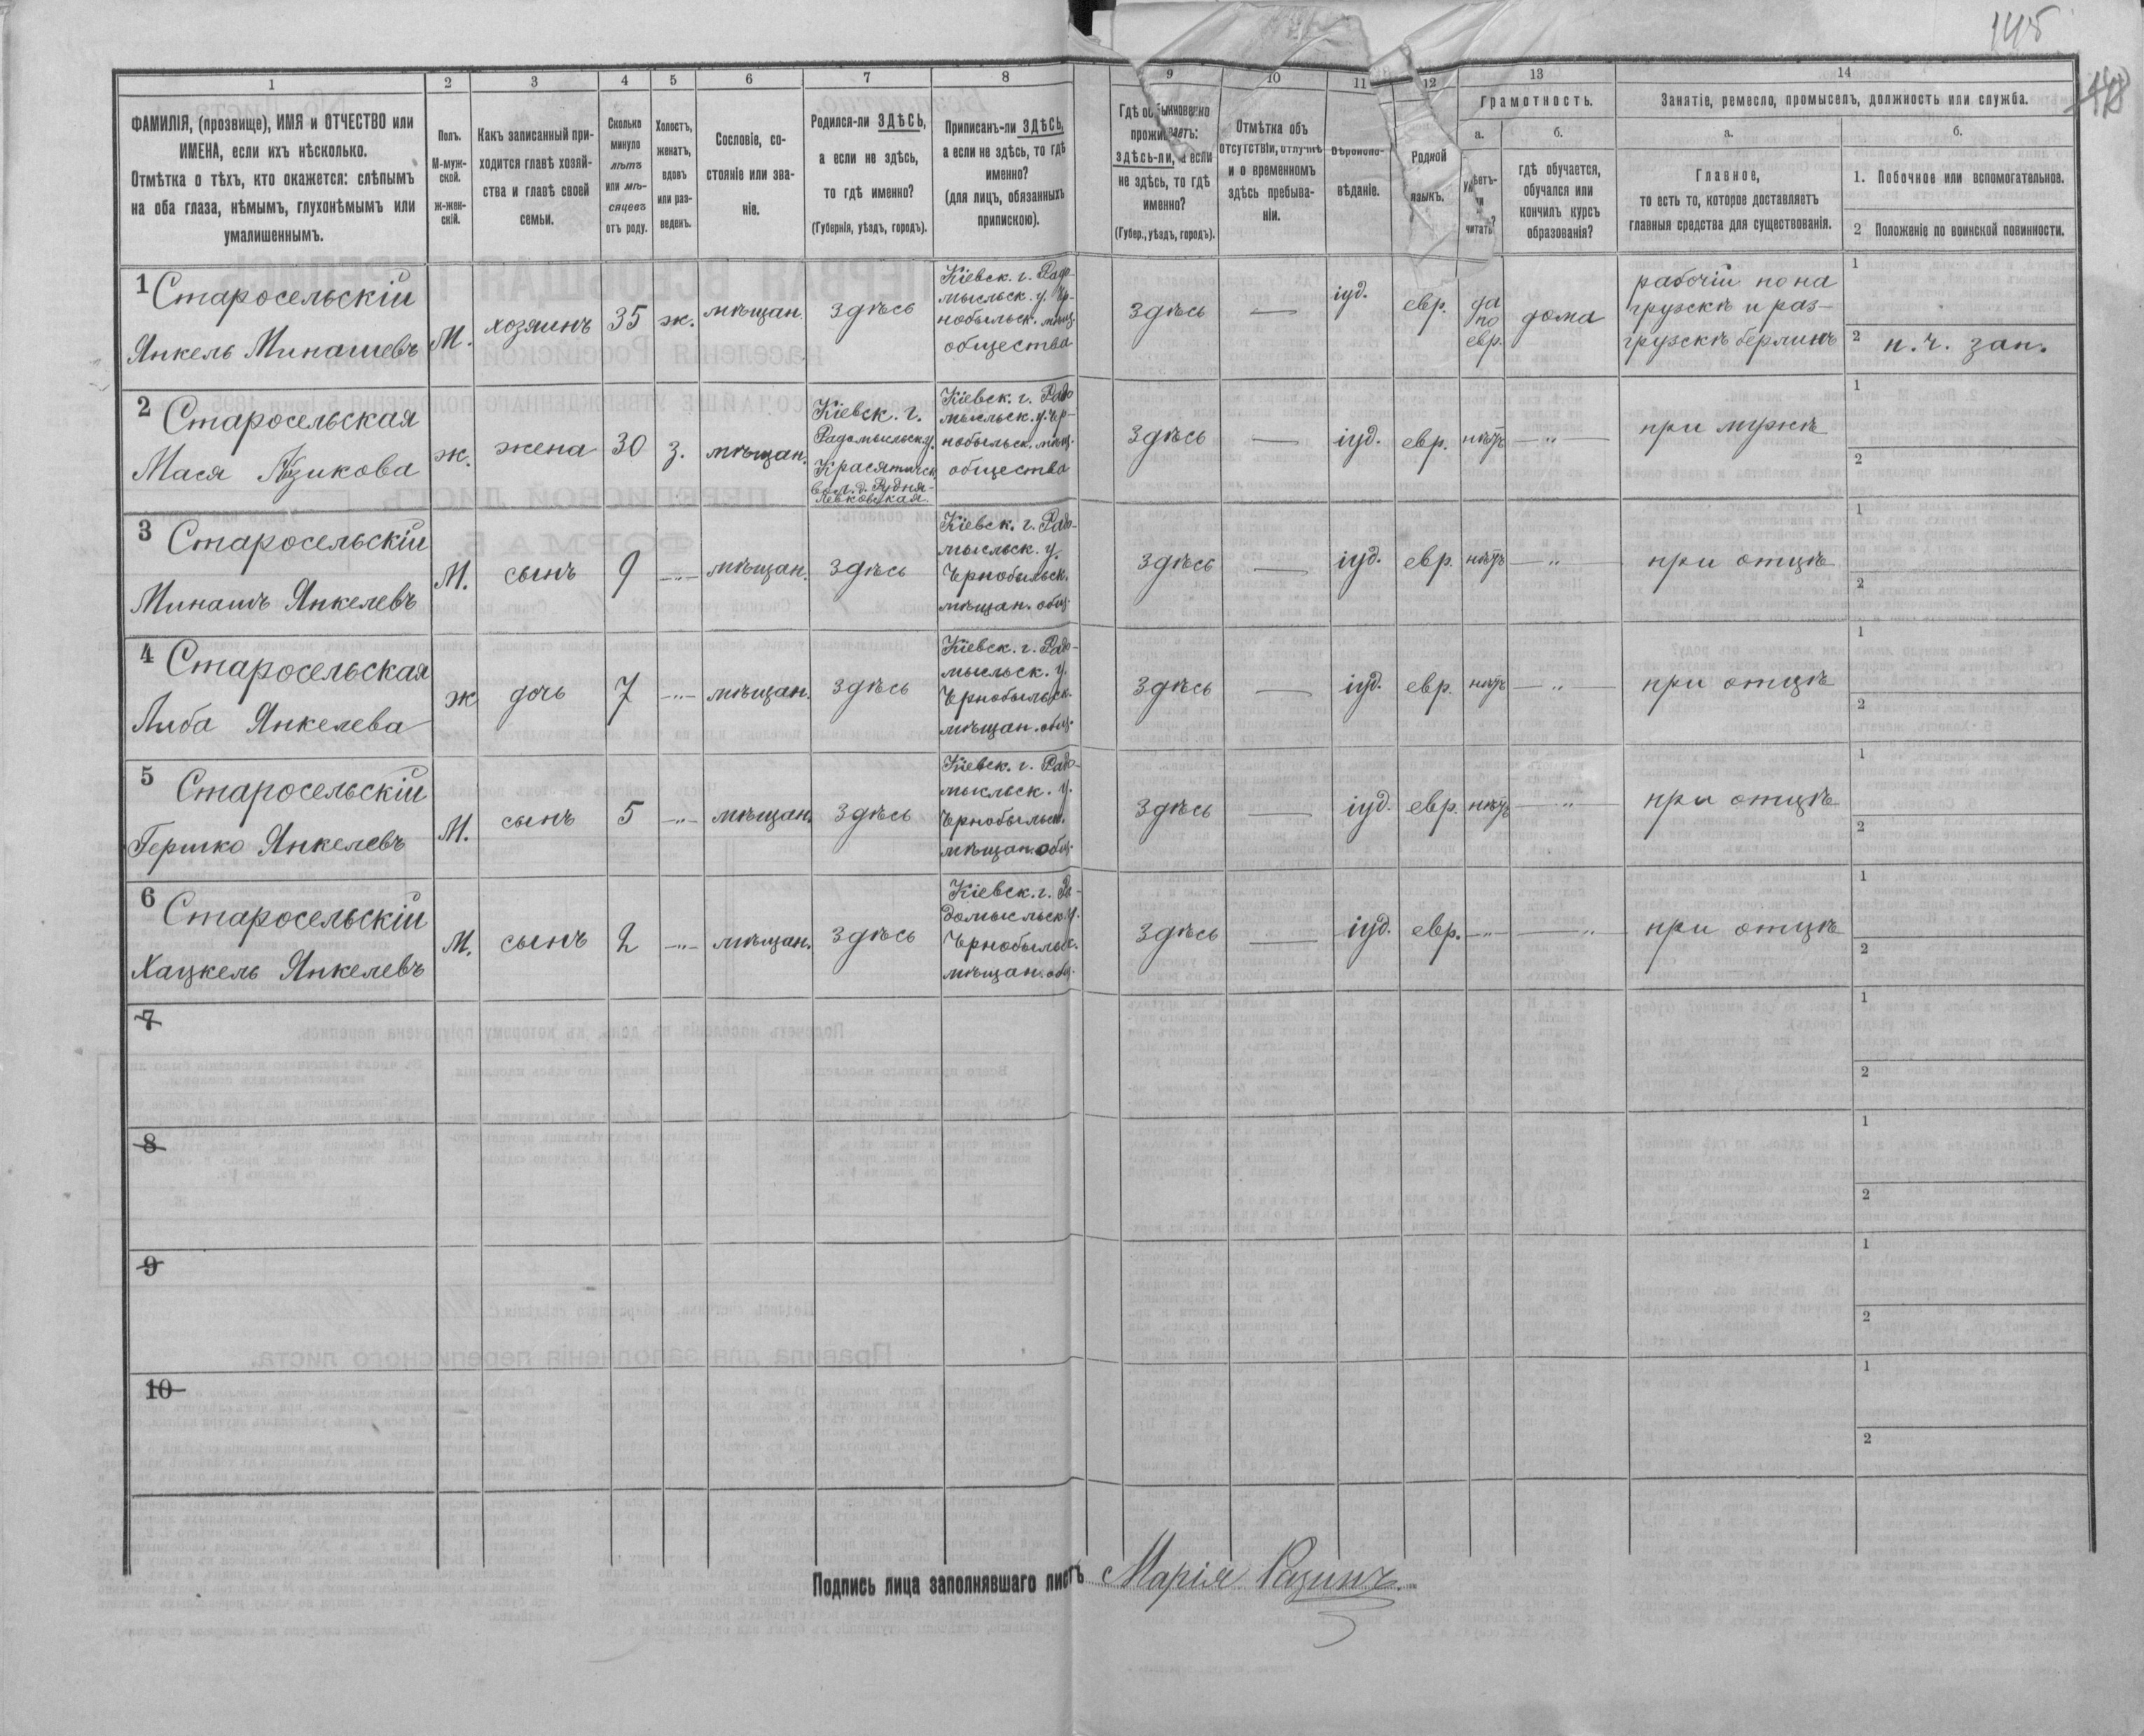 145
1 2 3 4 5 6 7 8 9 10 11 12 13 14
ФАМИЛІЯ, (прозвище), ИМЯ и ОТЧЕСТВО или
ИМЕНА, если ихъ нѣсколько.
Отмѣтка о тѣхъ, кто окажется: слѣпымъ
на оба глаза, нѣмымъ, глухонѣмымъ или
умалишеннымъ.
Полъ.
М-муж-
ской.
ж-жен-
скій.
Какъ записанный при-
ходится главѣ хозяй-
ства и главѣ своей
семьи.
Сколько
минуло
лѣтъ
или мѣ-
сяцевъ
отъ роду.
Холостъ,
женатъ,
вдовъ
или раз-
веденъ.
Сословіе, со-
стояніе или зва-
ніе.
Родился-ли ЗДѢСЬ,
а если не здѣсь,
то гдѣ именно?
(Губернія, уѣздъ, городъ).
Приписанъ-ли ЗДѢСЬ,
а если не здѣсь, то гдѣ
именно?
(для лицъ, обязанныхъ
припискою).
Гдѣ обыкновенно
проживаетъ:
здѣсь-ли, а если
не здѣсь, то гдѣ
именно?
(Губер., уѣздъ, городъ).
Отмѣтка объ
отсутствіи, отлучкѣ
и о временномъ
здѣсь пребыва-
ніи.
Вѣроиспо-
вѣданіе.
Родной
языкъ.
Грамотность.
а.
читать?
б.
гдѣ обучается,
обучался или
кончилъ курсъ
образованія?
Занятіе, ремесло, промыселъ, должность или служба.
а.
Главное,
то есть то, которое доставляетъ
главныя средства для существованія.
б.
1. Побочное или вспомогательное.
2 Положеніе по воинской повинности.
1 Старосельскій
Янкель Минашевъ
М.
хозяинъ
35
ж.
мѣщан.
здѣсь
Кіевск. г. Радо-
мысльск. у. Чр-
нобыльск. мѣщ.
общество
здѣсь
—
іуд.
евр.
да
по
евр.
дома
рабочій по на
грузкѣ и раз-
грузкѣ берлинъ
1
2 н. ч. зап.
2 Старосельская
Мася Айзикова
ж.
жена
30
з.
мѣщан.
Кіевск. г.
Радомысльск. у.
Красятичск.
вол. д. Рудня-
Левковская.
Кіевск. г. Радо
мысльск. у. Чр-
нобыльск. мѣщ.
общество
здѣсь
—
іуд.
евр.
нѣтъ
— „ —
при мужѣ
1
2
3 Старосельскій
Минашъ Янкелевъ
М.
сынъ
9
—„—
мѣщан.
здѣсь
Кіевск. г. Радо-
мысльск. у.
Чрнобыльск.
мѣщан. общ.
здѣсь
—
іуд.
евр.
нѣтъ
— „ —
при отцѣ
1
2
4 Старосельская
Либа Янкелева
ж
дочь
7
—„—
мѣщан.
здѣсь
Кіевск. г. Радо-
мысльск. у.
Чрнобыльск.
мѣщан. общ.
здѣсь
—
іуд.
евр.
нѣтъ
— „ —
при отцѣ
1
2
5 Старосельскій
Гершко Янкелевъ
М.
сынъ
5
—„—
мѣщан.
здѣсь
Кіевск. г. Радо-
мысльск. у.
Чрнобыльск.
мѣщан. общ.
здѣсь
—
іуд.
евр.
нѣтъ
— „ —
при отцѣ
1
2
6 Старосельскій
Хацкель Янкелевъ
М.
сынъ
2
—„—
мѣщан.
здѣсь
Кіевск. г. Ра-
домысльск. у.
Чрнобыльск.
мѣщан. общ.
здѣсь
—
іуд.
евр.
—„—
— „
при отцѣ
1
2
7
1
2
8
1
2
9
1
2
10
1
2
Подпись лица заполнявшаго листъ Марія Разинъ.